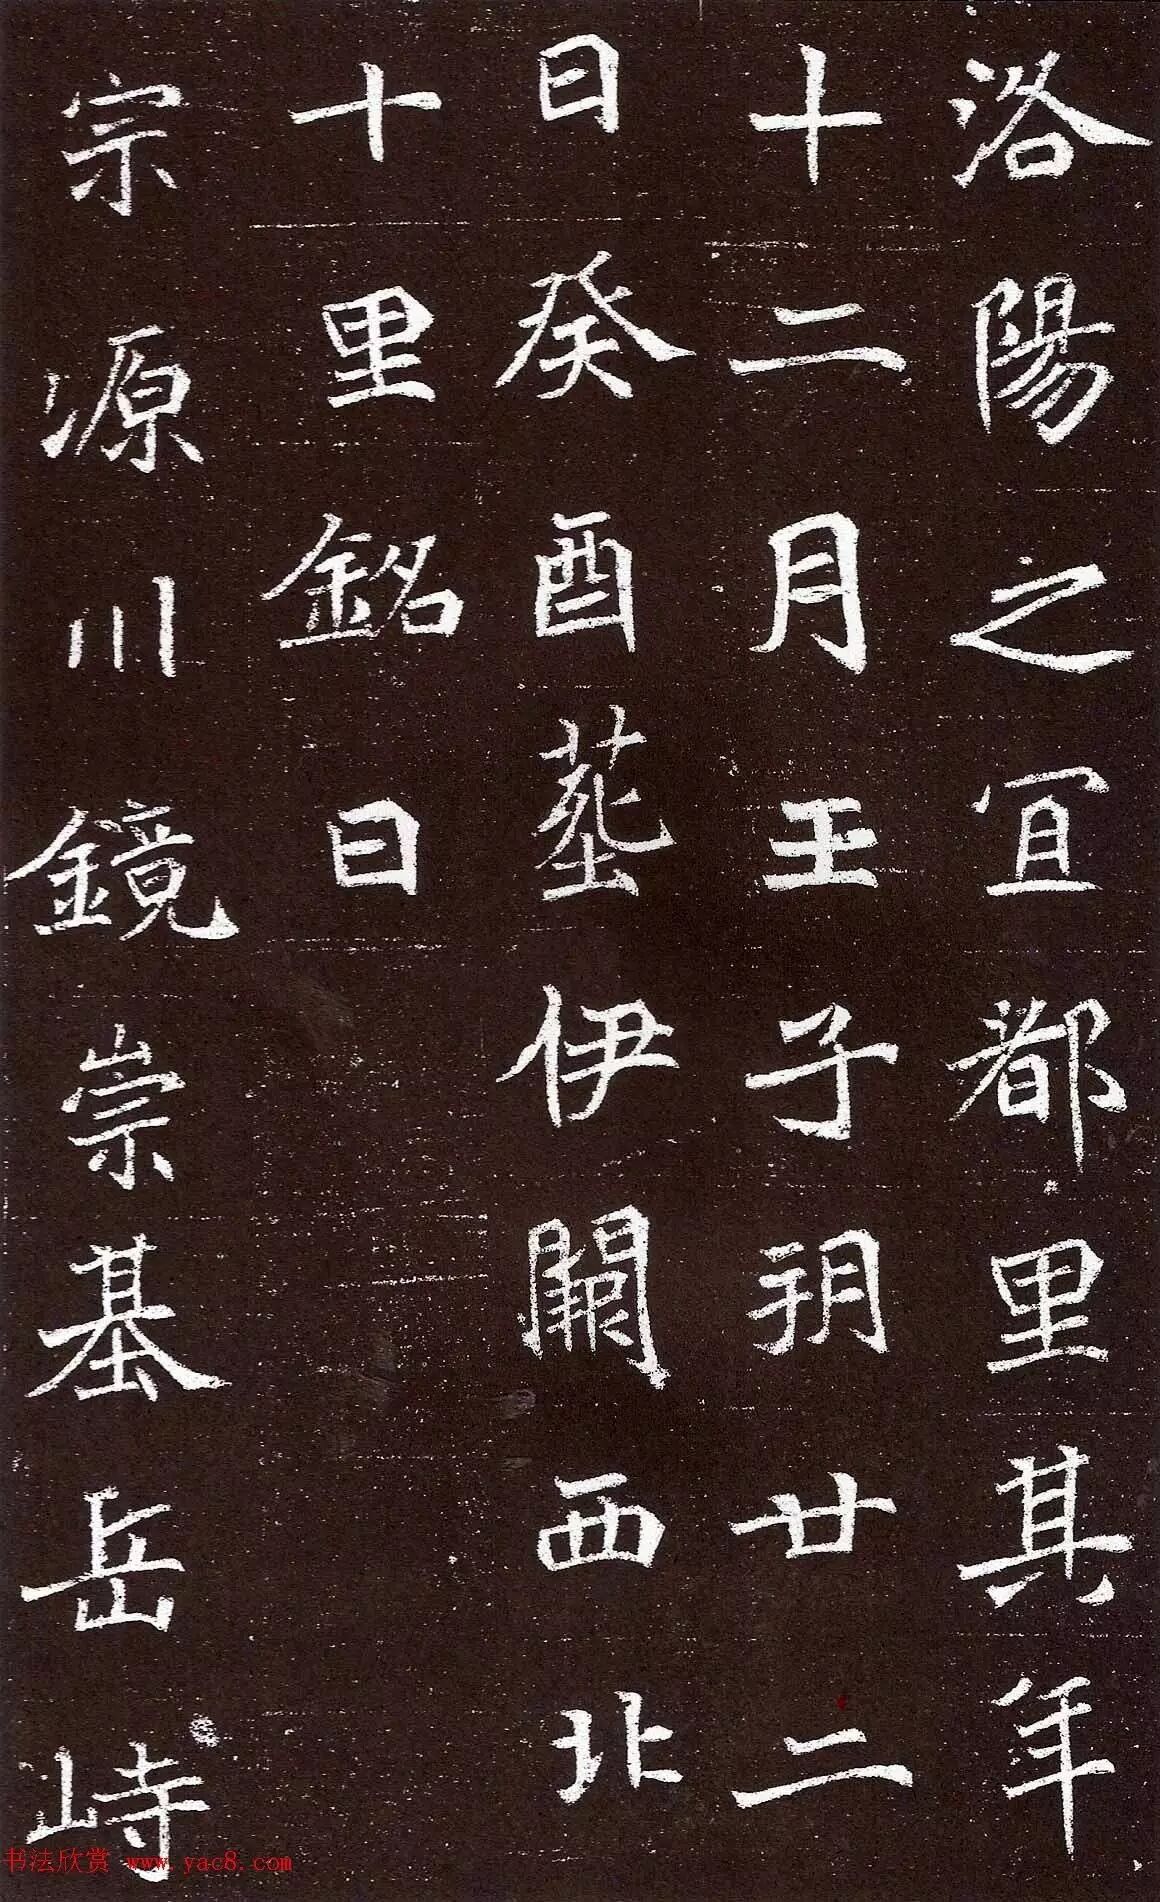 洛陽之宜都里其年
十二月壬子朔廿二
日癸酉葬伊闕西北
十里銘曰
宗源川鏡崇基岳峙
书法欣赏 www.yac8.com